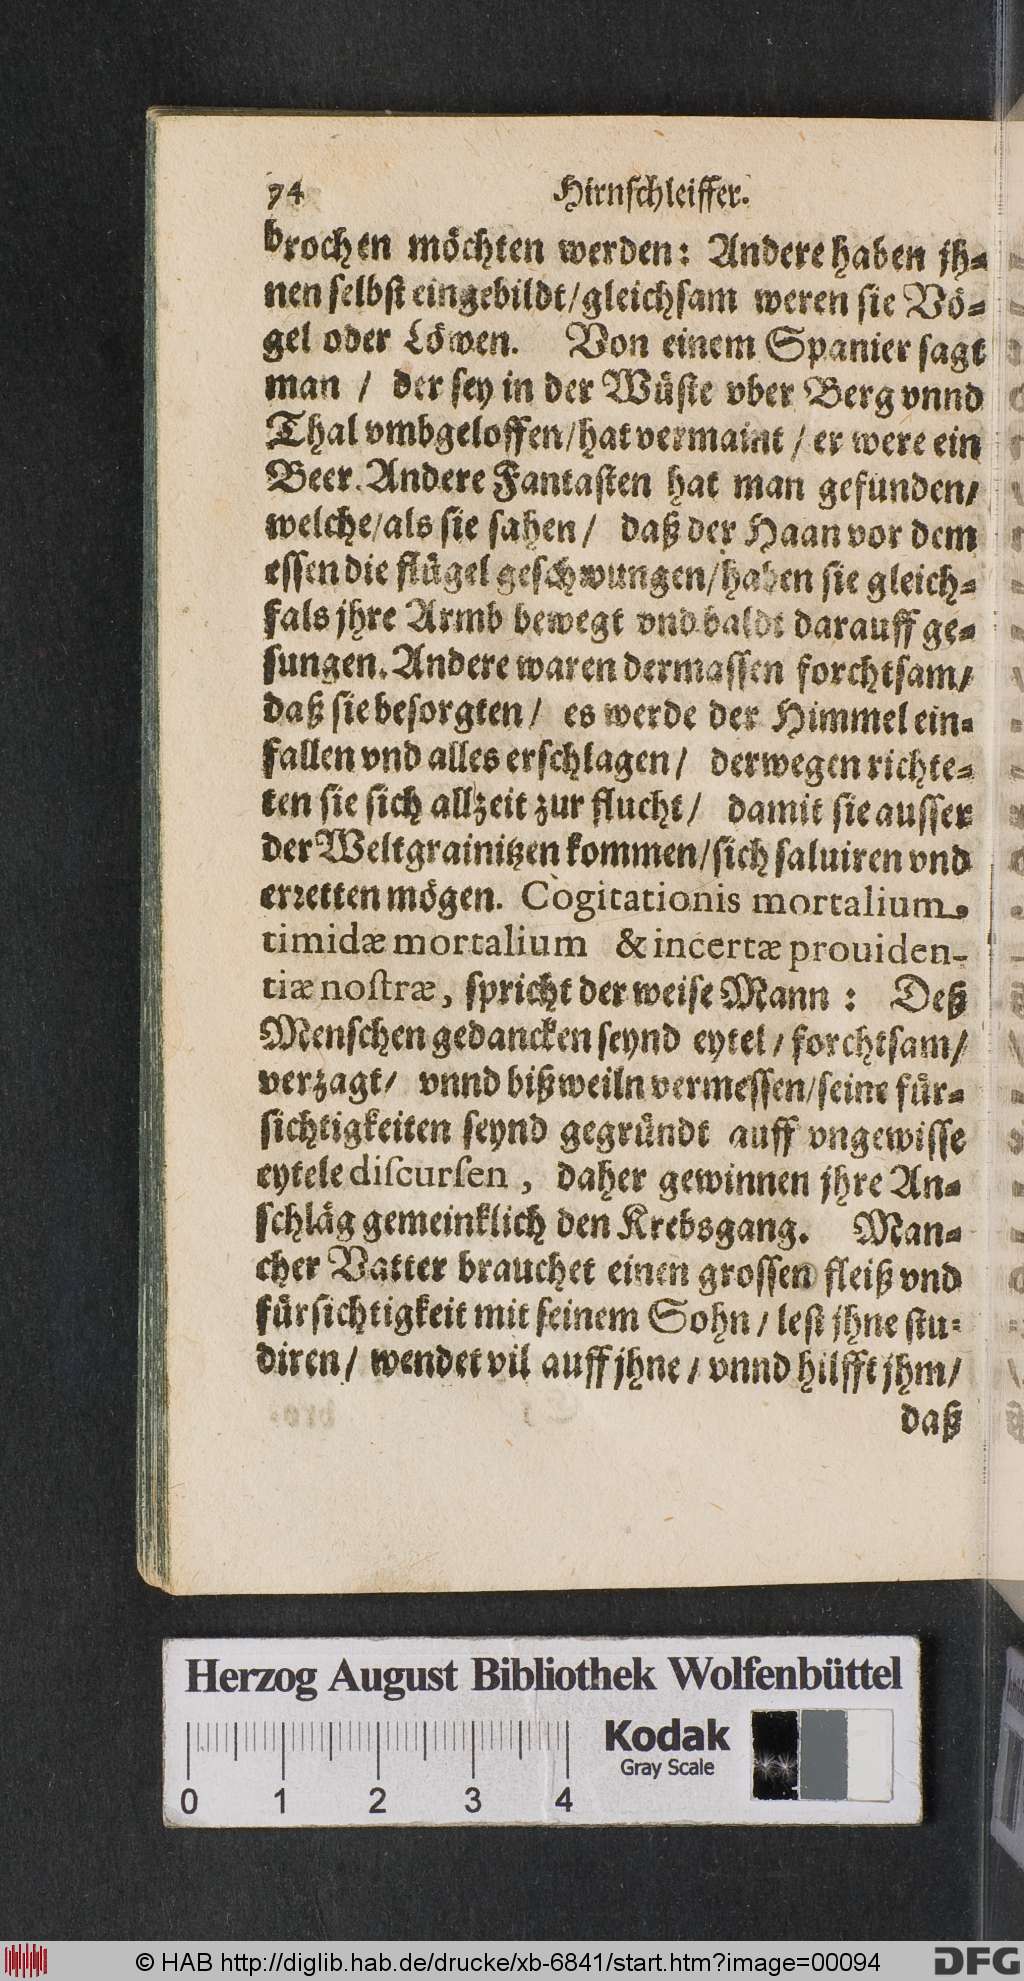 74 Hirnschleiffer.
brochen möchten werden: Andere haben jh⸗
nen selbst eingebildt/gleichsam weren sie Vö⸗
gel oder Löwen. Von einem Spanier sagt
man / der sey in der Wüste vber Berg vnnd
Thal vmbgeloffen/hat vermaint / er were ein
Beer. Andere Fantasten hat man gefunden/
welche/als sie sahen / daß der Haan vor dem
essen die flügel geschwungen/haben sie gleich⸗
fals jhre Armb bewegt vnd baldt darauff ge⸗
sungen. Andere waren dermassen forchtsam/
daß sie besorgten / es werde der Himmel ein⸗
fallen vnd alles erschlagen / derwegen richte⸗
ten sie sich allzeit zur flucht / damit sie ausser
der Weltgrainitzen kommen/sich saluiren vnd
erretten mögen. Cogitationis mortalium.
timidæ mortalium & incertæ prouiden-
tiæ noſtræ, spricht der weise Mann : Deß
Menschen gedancken seynd eytel / forchtsam/
verzagt/ vnnd bißweiln vermessen/seine für⸗
sichtigkeiten seynd gegründt auff vngewisse
eytele diſcurſen, daher gewinnen jhre An⸗
schläg gemeinklich den Krebsgang. Man⸗
cher Vatter brauchet einen grossen fleiß vnd
fürsichtigkeit mit seinem Sohn / lest jhne stu⸗
diren / wendet vil auff jhne / vnnd hilfft jhm/
daß
Herzog August Bibliothek Wolfenbüttel
Kodak
Gray Scale
0 1 2 3 4
© HAB http://diglib.hab.de/drucke/xb-6841/start.htm?image=00094
DFG